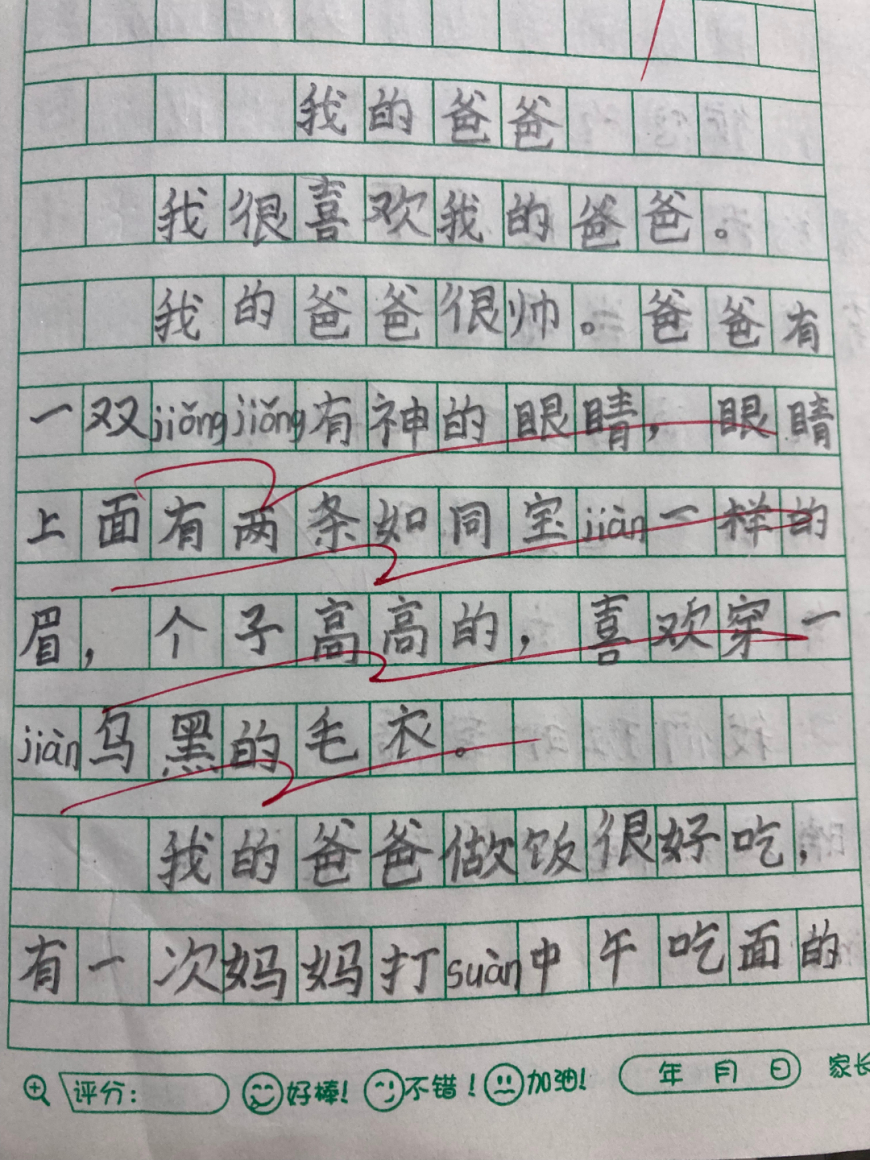 我的爸爸
我很喜欢我的爸爸。
我的爸爸很帅。爸爸有
一双jiǒngjiǒng有神的眼睛，眼睛
上面有两条如同宝jiàn一样的
眉，个子高高的，喜欢穿一
jiàn乌黑的毛衣。
我的爸爸做饭很好吃，
有一次妈妈打suàn中午吃面的
评分： 好棒！ 不错！ 加油！ 年 月 日 家长